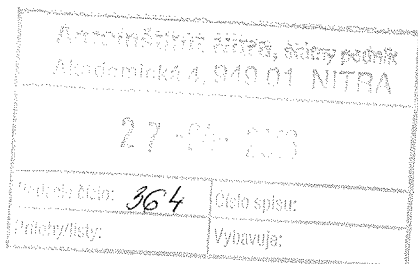 Agroinštitút Nitra, štátny podnik
Akademická 4, 949 01 NITRA
27 -04-
číslo: 364 Číslo spisu:
Prílohy/listy: Vybavuje: